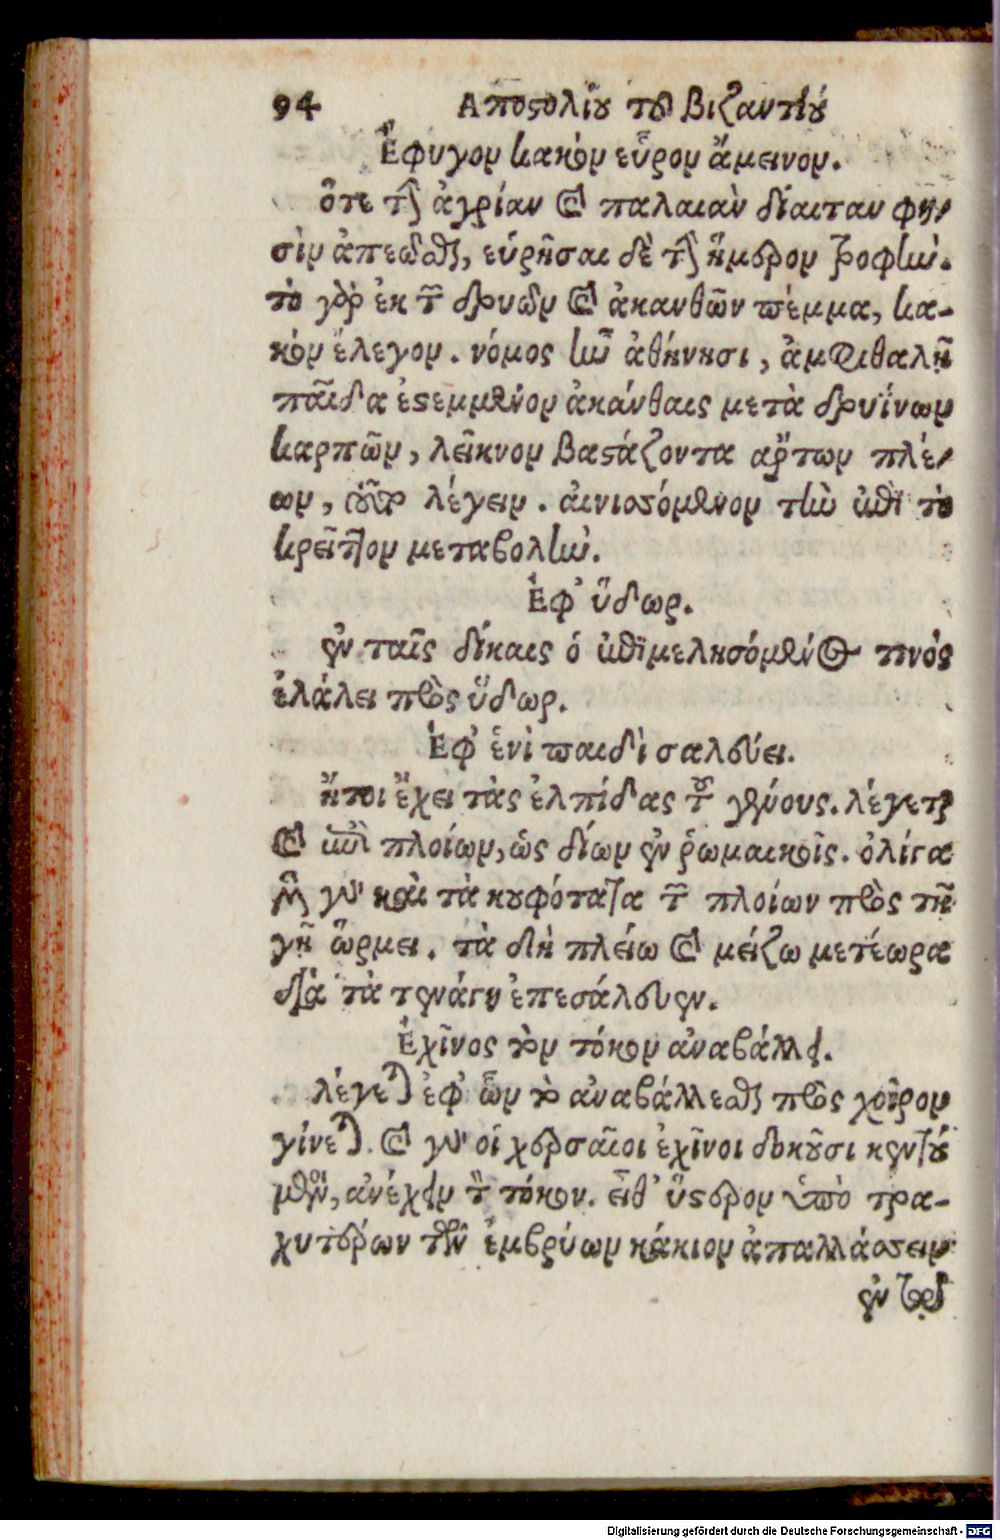 94 Αποϛολίȣ τȣ̃ βιζαντίȣ
Ἔφυγον κακὸν εὗρον ἄμεινον.
ὅτε τὴν ἀγρίαν καὶ παλαιὰν δίαιταν φη-
σὶν ἀπεῶσθαι, εὑρῆσαι δὲ τὴν ἥμερον τροφὴν.
τὸ γὰρ ἐκ τῶν δρυῶν καὶ ἀκανθῶν πέμμα, κα-
κὸν ἔλεγον. νόμος ἦν ἀθήνησι, ἀμφιθαλῆ
παῖδα ἐϛεμμένον ἀκάνθαις μετὰ δρυΐνων
καρπῶν, λεῖκνον βαϛάζοντα ἄρτων πλέ-
ων, λέγειν. αἰνιοσόμενον τὴν ἐπὶ τὸ
κρεῖττον μεταβολὴν.
Ἐφ' ὕδωρ.
ἐν ταῖς δίκαις ὁ ἐπιμελησόμενος τινὸς
ἐλάλει πρὸς ὕδωρ.
Ἐφ' ἑνὶ παιδὶ σαλεύει.
ἤτοι ἔχει τὰς ἐλπίδας τοῦ γένους. λέγεται
καὶ ἐπὶ πλοίων, ὡς δίων ἐν ῥωμαικοῖς. ὀλίγα
μὲν γὰρ καὶ τὰ κȣφότατα τῶν πλοίων πρὸς τῇ
γῇ ὥρμει. τὰ δὴ πλείω καὶ μείζω μετέωρα
διὰ τὰ τενάγη ἐπεσάλευεν.
Ἐχῖνος τὸν τόκον ἀναβάλλει.
λέγεται ἐφ' ὧν τὸ ἀναβάλλεσθαι πρὸς χεῖρον
γίνεται. καὶ γὰρ οἱ χερσαῖοι ἐχῖνοι δοκȣ̃σι κεντȣ́
μενοι, ἀνέχειν τὸν τόκον. εἶθ' ὕϛερον ὑπὸ τρα-
χυτέρων τῶν ἐμβρύων κάκιον ἀπαλλάσσειν
ἐν
Digitalisierung gefördert durch die Deutsche Forschungsgemeinschaft - DFG